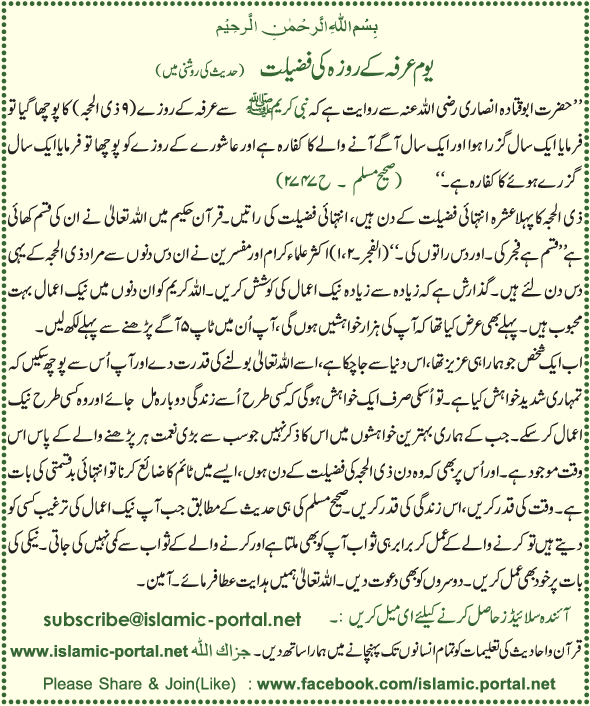 بِسْمِ اللهِ الرَّحْمٰنِ الرَّحِيْمِ
یوم عرفہ کے روزہ کی فضیلت (حدیث کی روشنی میں)
’’حضرت ابوقتادہ انصاری رضی اللہ عنہ سے روایت ہے کہ نبی کریم ﷺ سے عرفہ کے روزے (۹ ذی الحجہ) کا پوچھا گیا تو
فرمایا ایک سال گزرا ہوا اور ایک سال آگے آنے والے کا کفارہ ہے اور عاشورے کے روزے کو پوچھا تو فرمایا ایک سال
گزرے ہوئے کا کفارہ ہے۔‘‘ (صحیح مسلم ۔ ح ۲۷۴۷)
ذی الحجہ کا پہلا عشرہ انتہائی فضیلت کے دن ہیں، انتہائی فضیلت کی راتیں۔ قرآن حکیم میں اللہ تعالٰی نے ان کی قسم کھائی
ہے ’’قسم ہے فجر کی۔ اور دس راتوں کی۔‘‘ (الفجر۔۱،۲) اکثر علماء کرام اور مفسرین نے ان دس دنوں سے مراد ذی الحجہ کے یہی
دس دن لئے ہیں۔ گذارش ہے کہ زیادہ سے زیادہ نیک اعمال کی کوشش کریں۔ اللہ کریم کو ان دنوں میں نیک اعمال بہت
محبوب ہیں۔ پہلے بھی عرض کیا تھا کہ آپ کی ہزار خواہشیں ہوں گی، آپ اُن میں ٹاپ ۵ آگے پڑھنے سے پہلے لکھ لیں۔
اب ایک شخص جو ہمارا ہی عزیز تھا، اس دنیا سے جا چکا ہے، اسے اللہ تعالٰی بولنے کی قدرت دے اور آپ اُس سے پوچھ سکیں کہ
تمہاری شدید خواہش کیا ہے۔ تو اُسکی صرف ایک خواہش ہو گی کہ کسی طرح اُسے زندگی دوبارہ مل جائے اور وہ کسی طرح نیک
اعمال کر سکے۔ جب کے ہماری بہترین خواہشوں میں اس کا ذکر نہیں جو سب سے بڑی نعمت ہر پڑھنے والے کے پاس اس
وقت موجود ہے۔ اور اُس پر بھی کہ وہ دن ذی الحجہ کی فضیلت کے دن ہوں، ایسے میں ٹائم کا ضائع کرنا تو انتہائی بد قسمتی کی بات
ہے۔ وقت کی قدر کریں، اس زندگی کی قدر کریں۔ صحیح مسلم کی ہی حدیث کے مطابق جب آپ نیک اعمال کی ترغیب کسی کو
دیتے ہیں تو کرنے والے کے عمل کر برابر ہی ثواب آپ کو بھی ملتا ہے اور کرنے والے کے ثواب سے کمی نہیں کی جاتی۔ نیکی کی
بات پر خود بھی عمل کریں۔ دوسروں کو بھی دعوت دیں۔ اللہ تعالٰی ہمیں ہدایت عطا فرمائے۔ آمین۔
آئندہ سلائیڈز حاصل کرنے کیلئے ای میل کریں :۔ subscribe@islamic-portal.net
قرآن و احادیث کی تعلیمات کو تمام انسانوں تک پہنچانے میں ہمارا ساتھ دیں۔ جزاك الله www.islamic-portal.net
Please Share & Join(Like) : www.facebook.com/islamic.portal.net